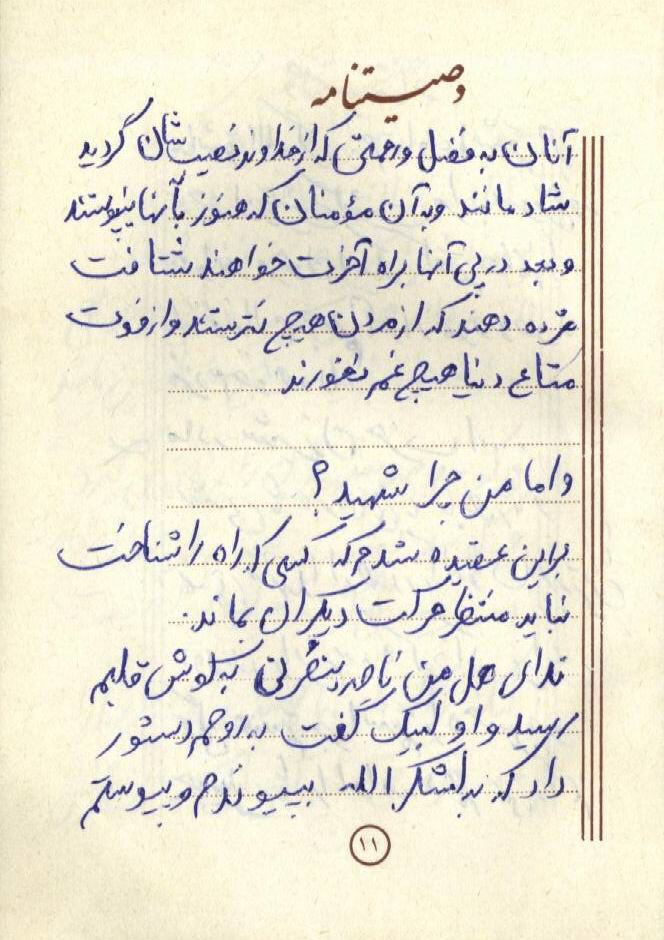 وصیتنامه
آنان به فضل و رحمتی که از خداوند نصیب شان گردید
شادمانند و به آن مؤمنان که هنوز بآنها نپیوستند
و بعد در پی آنها براه آخرت خواهند شتافت
مژده دهند که از مردن هیچ نترسند و از فوت
متاع دنیا هیچ غم نخورند
و اما من چرا شهید؟
براین عقیده شدم که کسی که راه را شناخت
نباید منتظر حرکت دیگران بماند.
ندای هل من ناصر ینصرنی به گوش قلبم
رسید و او لبیک گفت به روحم دستور
داد که به لشکر الله بپیوندم و پیوستم
۱۱